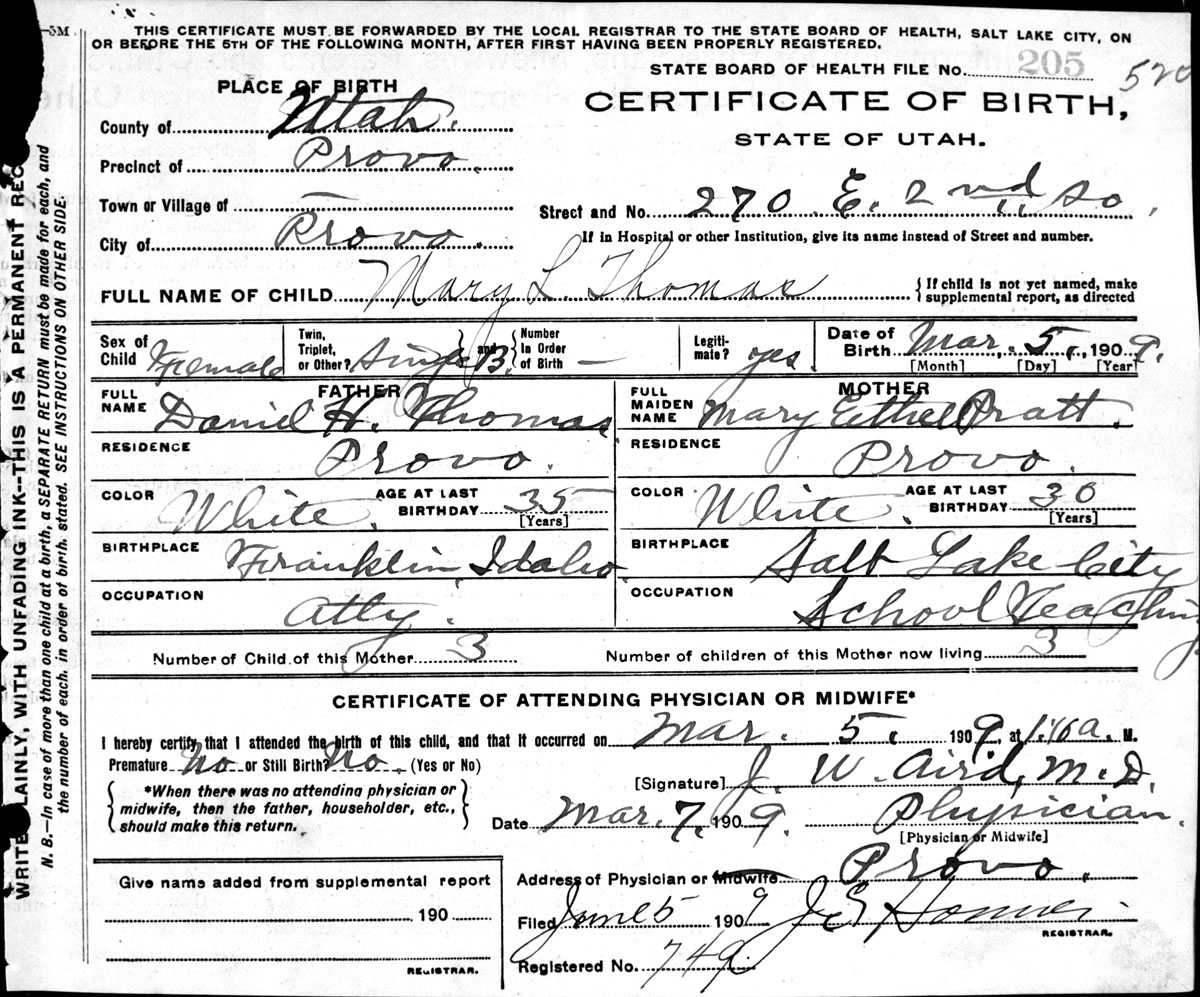 -5M
THIS CERTIFICATE MUST BE FORWARDED BY THE LOCAL REGISTRAR TO THE STATE BOARD OF HEALTH, SALT LAKE CITY, ON
OR BEFORE THE 5TH OF THE FOLLOWING MONTH, AFTER FIRST HAVING BEEN PROPERLY REGISTERED.
STATE BOARD OF HEALTH FILE No. 205 520
PLACE OF BIRTH
CERTIFICATE OF BIRTH,
STATE OF UTAH.
County of Utah.
Precinct of Provo.
Town or Village of —
Street and No. 270 E. 2nd So.
City of Provo.
If in Hospital or other Institution, give its name instead of Street and number.
FULL NAME OF CHILD Mary L. Thomas
{ If child is not yet named, make
supplemental report, as directed
Sex of Child Female
Twin, Triplet, or Other? Single B. } and { Number In Order of Birth —
Legiti- mate? yes
Date of Birth Mar. 5, 1909.
[Month] [Day] [Year]
FATHER
FULL NAME Daniel H. Thomas
RESIDENCE Provo.
COLOR White. AGE AT LAST BIRTHDAY 35
[Years]
BIRTHPLACE Franklin, Idaho
OCCUPATION Atty.
MOTHER
FULL MAIDEN NAME Mary Ethel Pratt.
RESIDENCE Provo.
COLOR White. AGE AT LAST BIRTHDAY 30
[Years]
BIRTHPLACE Salt Lake City
OCCUPATION School Teaching
Number of Child of this Mother 3 Number of children of this Mother now living 3
CERTIFICATE OF ATTENDING PHYSICIAN OR MIDWIFE*
I hereby certify that I attended the birth of this child, and that it occurred on Mar. 5, 1909, at M.
Premature No or Still Birth? No. (Yes or No)
[Signature] J. W. Aird, M.D.
{ *When there was no attending physician or
midwife, then the father, householder, etc.,
should make this return. }
Date Mar. 7, 1909. Physician.
[Physician or Midwife]
Address of Physician or Midwife Provo.
Give name added from supplemental report
190
REGISTRAR.
Filed June 5 1909 J.E.
REGISTRAR.
Registered No. 749
WRITE PLAINLY, WITH UNFADING INK--THIS IS A PERMANENT REC
N. B.—In case of more than one child at a birth, a SEPARATE RETURN must be made for each, and
the number of each, in order of birth, stated. SEE INSTRUCTIONS ON OTHER SIDE.